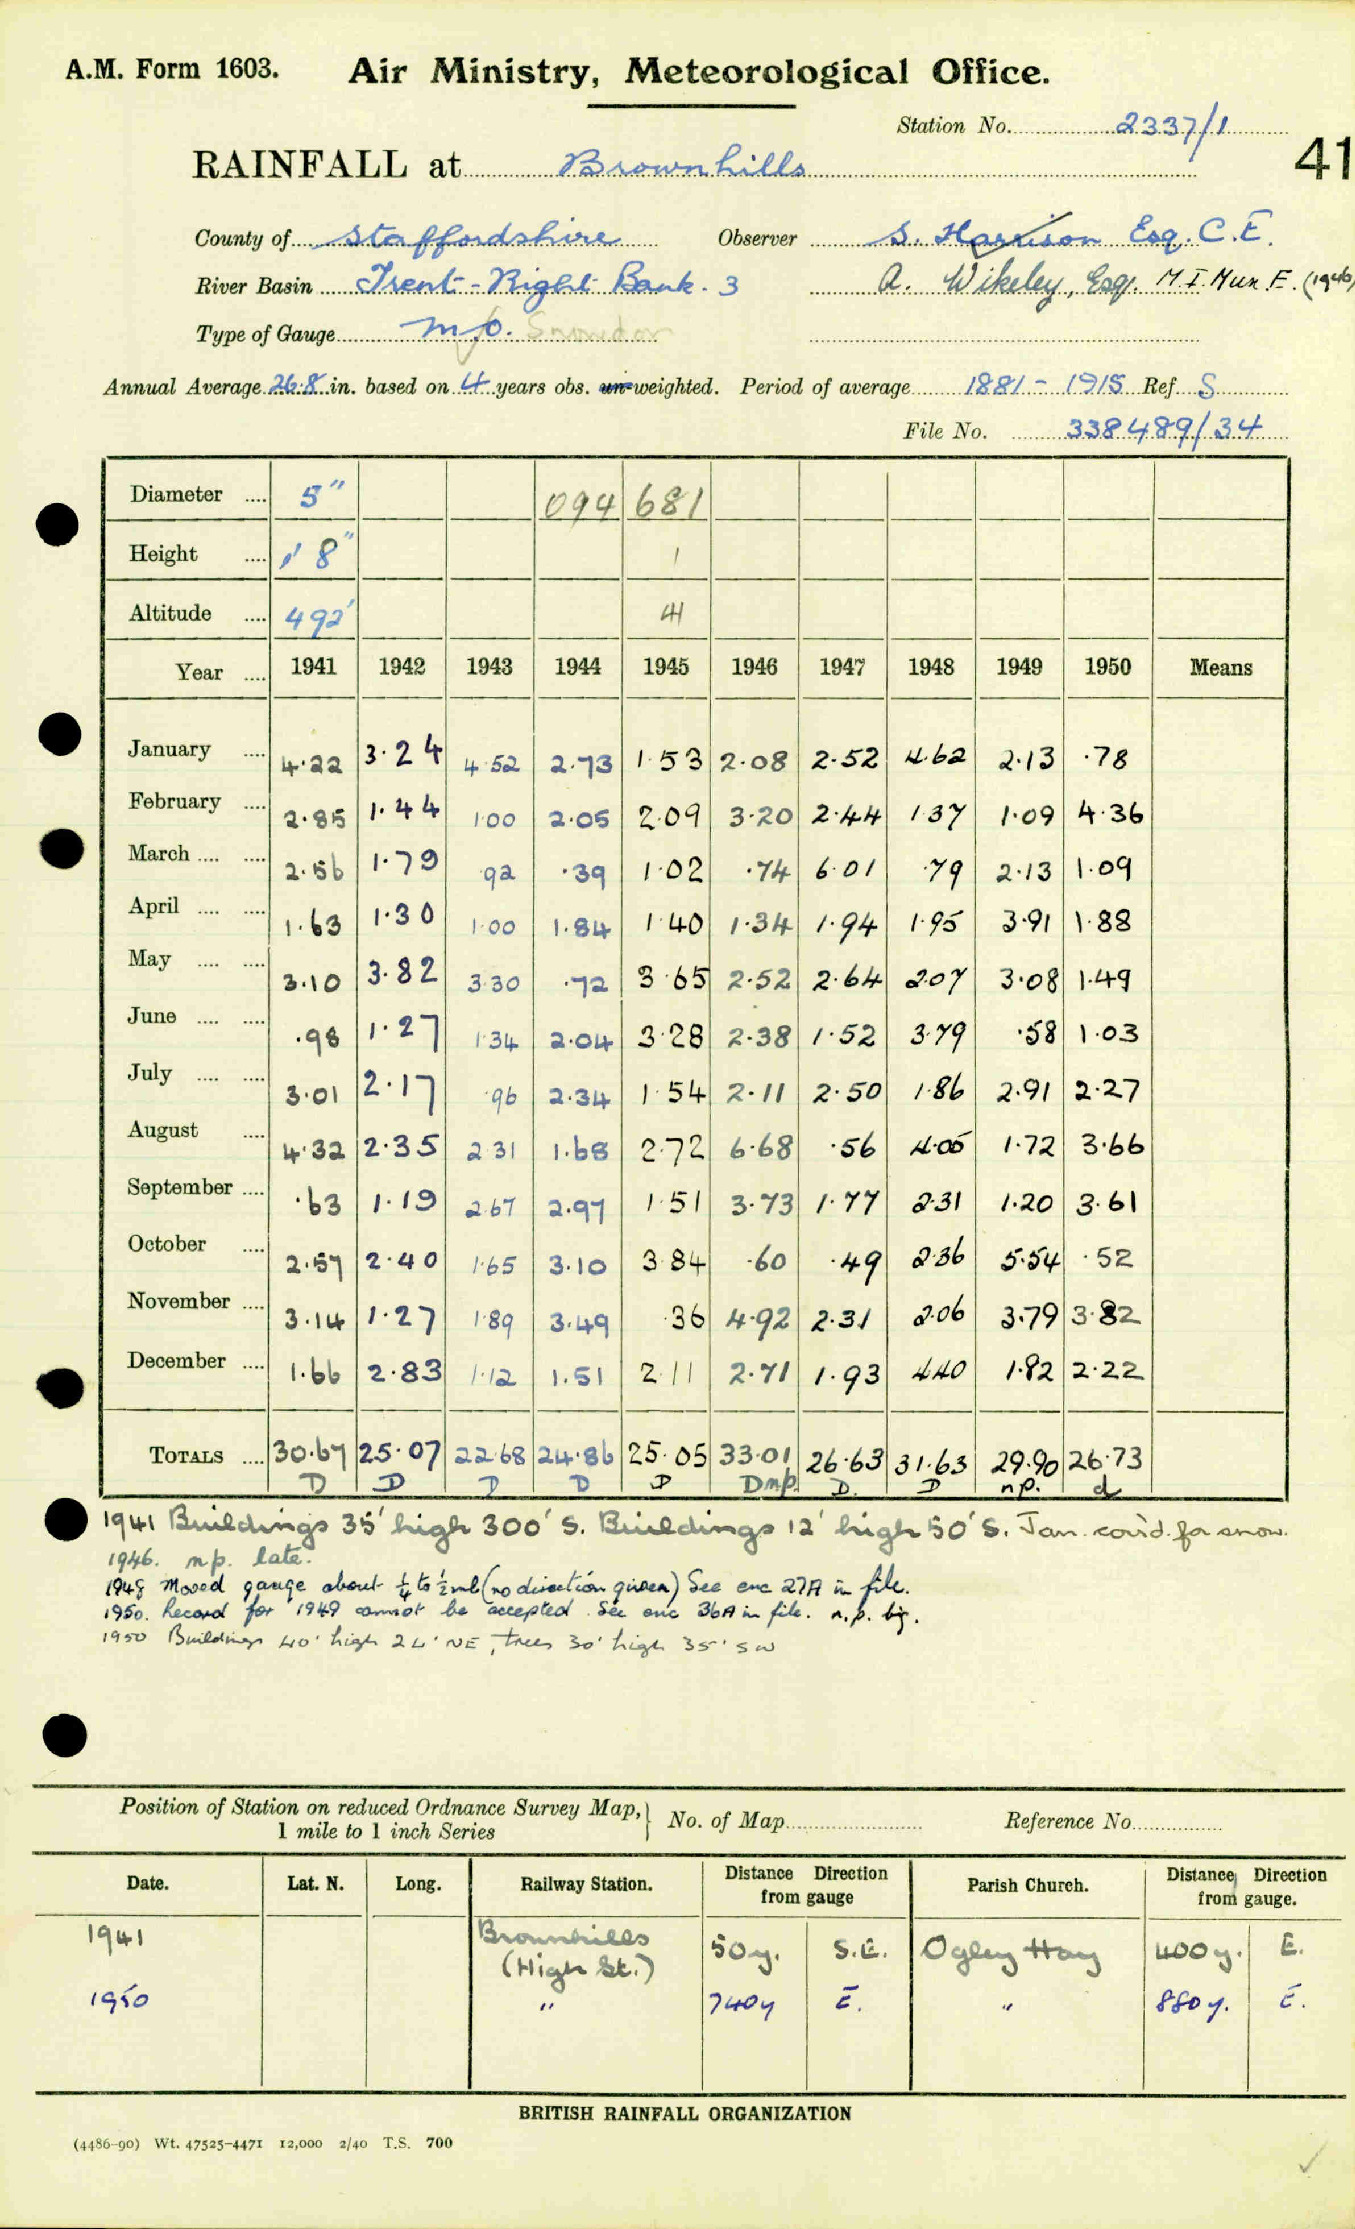 A.M. Form 1603. Air Ministry, Meteorological Office.
Station No. 2337/1
41
RAINFALL at Brownhills
County of Staffordshire Observer S. Harrison Esq. C.E.
River Basin Trent - Right Bank. 3 A. Wikeley, Esq. M I Mun E. (1946)
Type of Gauge m/o. Snowdon
Annual Average 26.8 in. based on 4 years obs. un-weighted. Period of average 1881 - 1915 Ref S
File No. 338489/34
Diameter .... 5" 094 681
Height .... 1' 8" 1
Altitude .... 492' 41
Year .... 1941 1942 1943 1944 1945 1946 1947 1948 1949 1950 Means
January .... 4.22 3.24 4.52 2.73 1.53 2.08 2.52 4.62 2.13 .78
February .... 2.85 1.44 1.00 2.05 2.09 3.20 2.44 1.37 1.09 4.36
March .... .... 2.56 1.79 .92 .39 1.02 .74 6.01 .79 2.13 1.09
April .... .... 1.63 1.30 1.00 1.84 1.40 1.34 1.94 1.95 3.91 1.88
May .... .... 3.10 3.82 3.30 .72 3.65 2.52 2.64 2.07 3.08 1.49
June .... .... .98 1.27 1.34 2.04 3.28 2.38 1.52 3.79 .58 1.03
July .... .... 3.01 2.17 .96 2.34 1.54 2.11 2.50 1.86 2.91 2.27
August .... 4.32 2.35 2.31 1.68 2.72 6.68 .56 4.05 1.72 3.66
September .... .63 1.19 2.67 2.97 1.51 3.73 1.77 2.31 1.20 3.61
October .... 2.57 2.40 1.65 3.10 3.84 .60 .49 2.36 5.54 .52
November .... 3.14 1.27 1.89 3.49 .36 4.92 2.31 2.06 3.79 3.82
December .... 1.66 2.83 1.12 1.51 2.11 2.71 1.93 4.40 1.82 2.22
TOTALS .... 30.67 25.07 22.68 24.86 25.05 33.01 26.63 31.63 29.90 26.73
D D D D D Dnp. D. D np. d
1941 Buildings 35' high 300' S. Buildings 12' high 50' S. Jan. cor'd. for snow.
1946. n.p. late.
1948 Moved gauge about ¼ to ½ ml (no direction given) See enc 27A in file.
1950. Record for 1949 cannot be accepted. See enc 36A in file. n.p. big.
1950 Buildings 40' high 24' NE, trees 30' high 35' SW
Position of Station on reduced Ordnance Survey Map, No. of Map Reference No.
1 mile to 1 inch Series
Date. Lat. N. Long. Railway Station. Distance Direction from gauge Parish Church. Distance Direction from gauge.
1941 Brownhills (High St.) 50y. S.E. Ogley Hay 400y. E.
1950 " 740y E. " 880y. E.
BRITISH RAINFALL ORGANIZATION
(4486-90) Wt. 47525-4471 12,000 2/40 T.S. 700